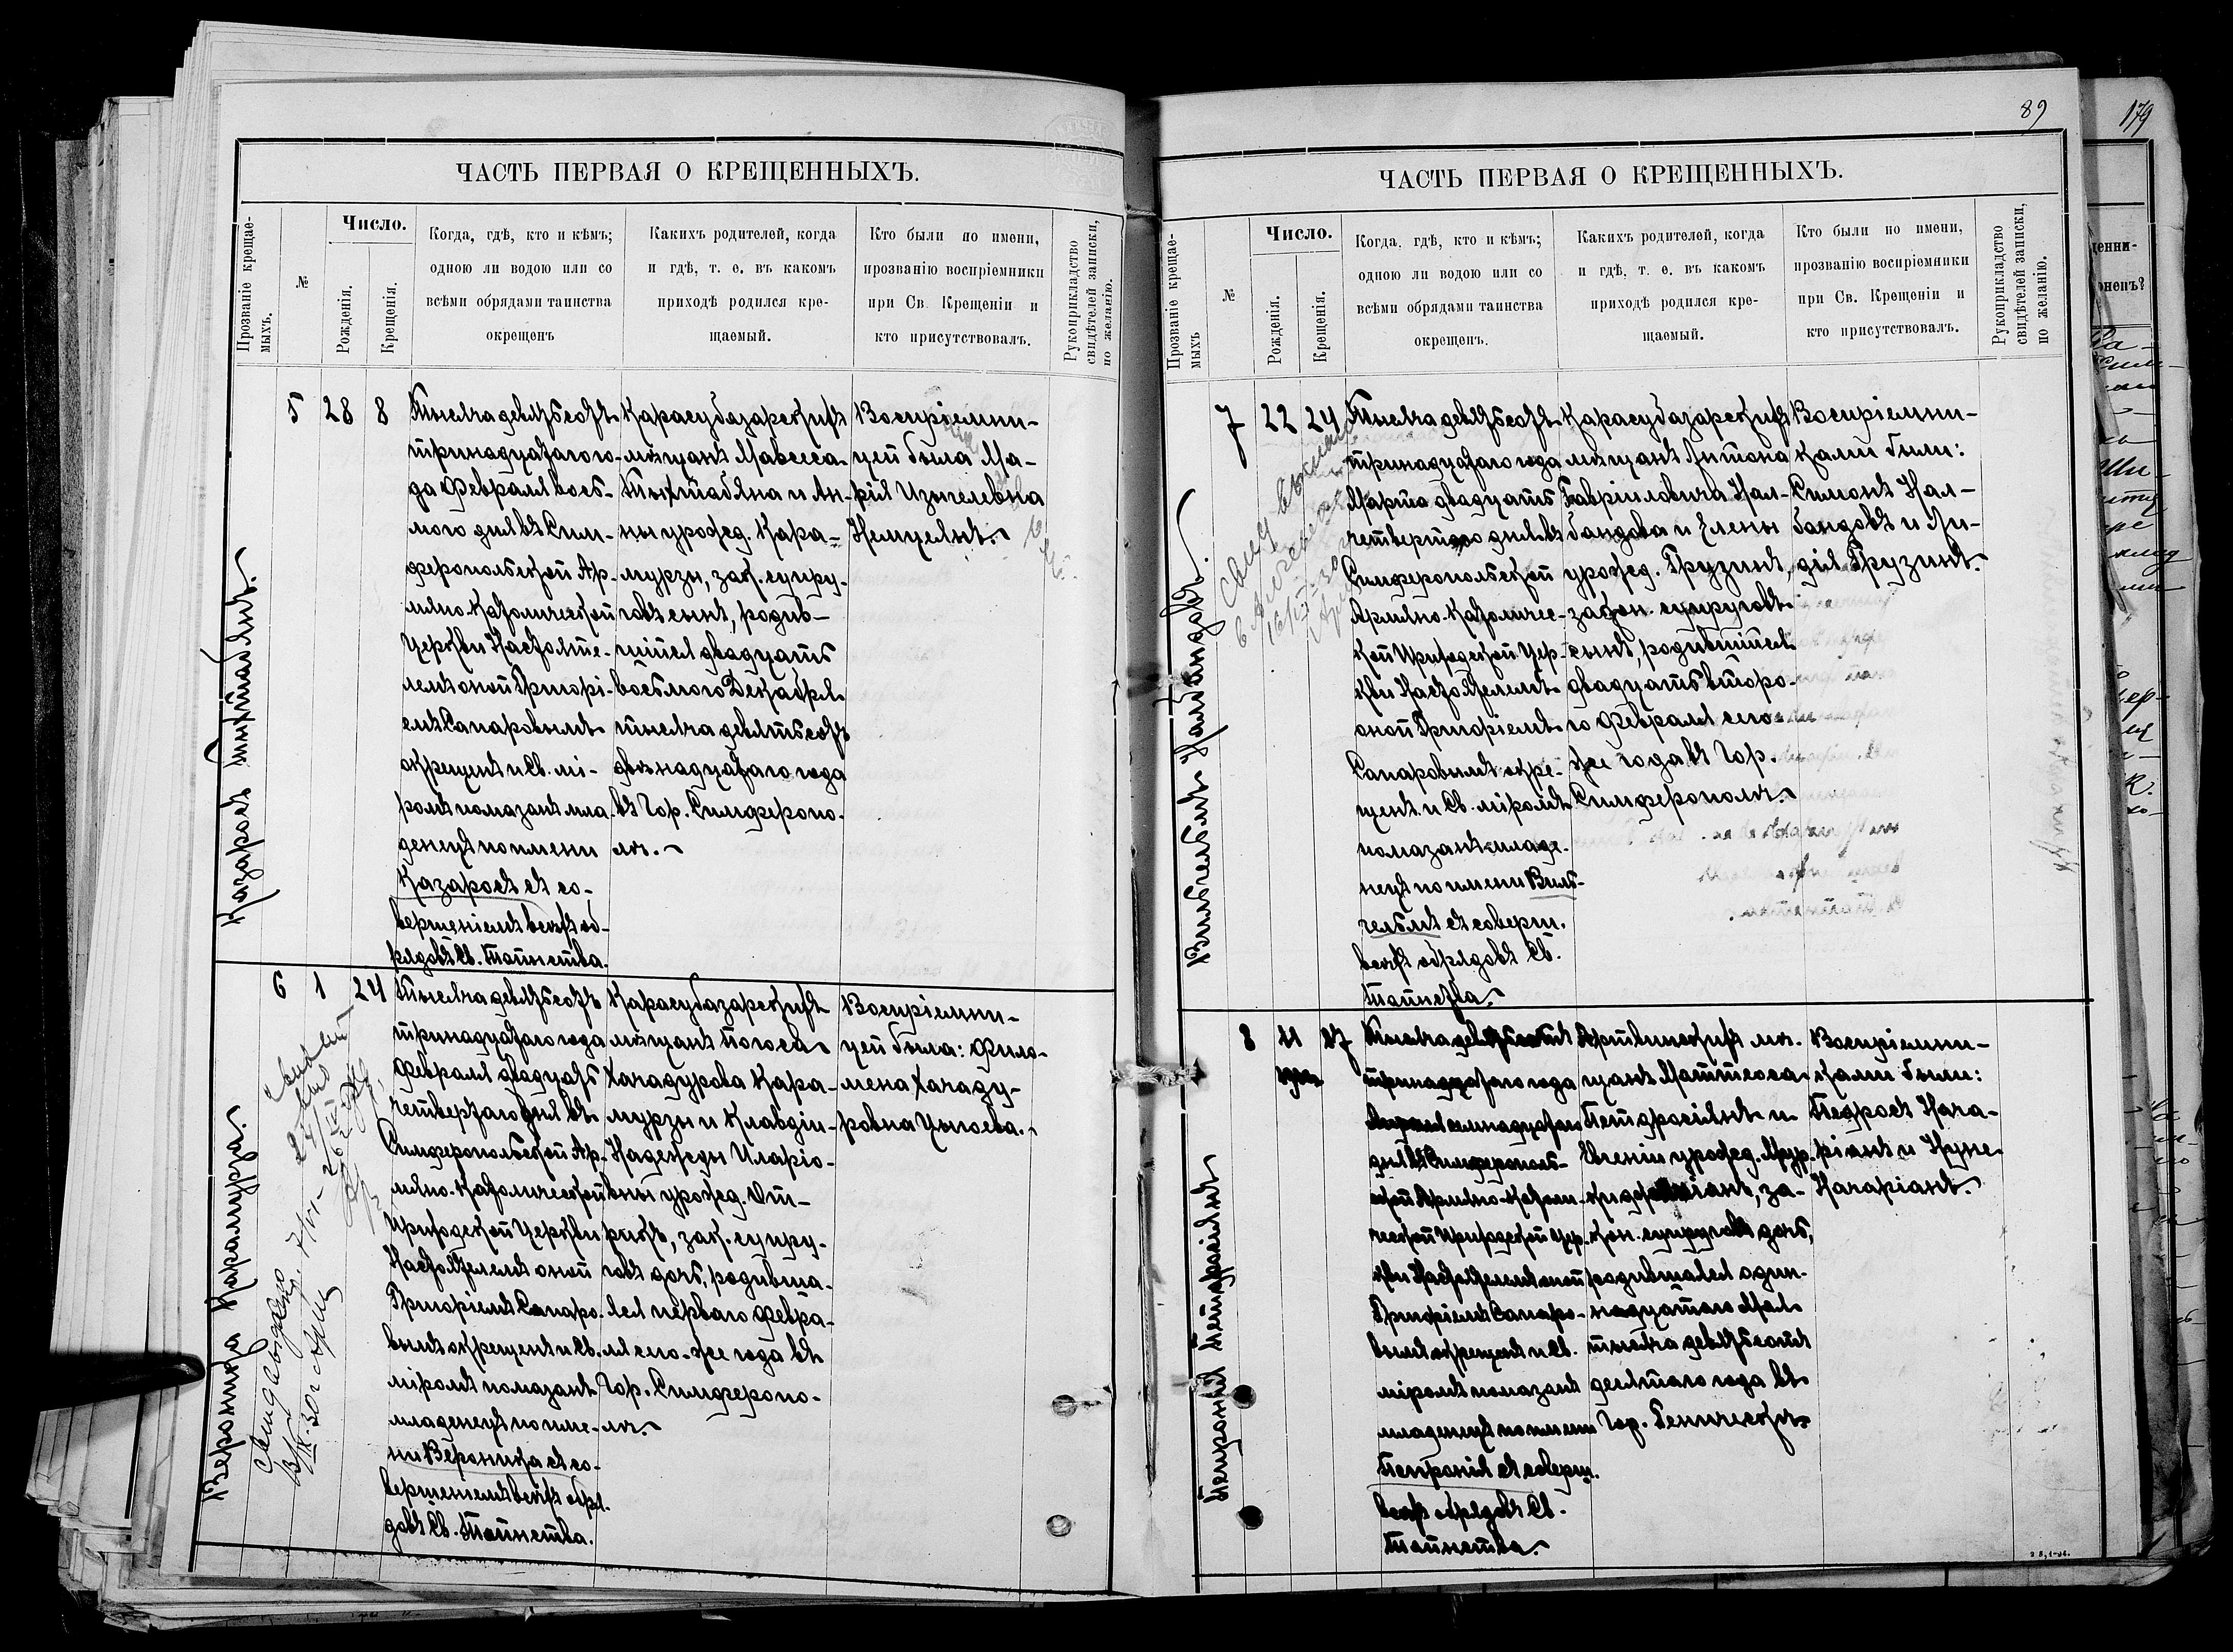 ЧАСТЬ ПЕРВАЯ О КРЕЩЕННЫХЪ.
Прозваніе крещае-
мыхъ.
№
Число.
Рожденія.
Крещенія.
Когда, гдѣ, кто и кѣмъ;
одною ли водою или со
всѣми обрядами таинства
окрещенъ
Какихъ родителей, когда
и гдѣ, т. е. въ какомъ
приходѣ родился кре-
щаемый.
Кто были по имени,
прозванію воспріемники
при Св. Крещеніи и
кто присутствовалъ.
Рукоприкладство
свидѣтелей записки,
по желанію.
Казаросъ
5
28
8
Тысяча девятьсотъ
тринадцатаго го-
да Февраля вось-
мого дня въ Сим-
феропольской Ар-
мяно-Католической
Церкви Настояте-
лемъ оной Григорі-
емъ Сапаровымъ
окрещенъ и Св. мѵ-
ромъ помазанъ мла-
денецъ по имени
Казаросъ съ со-
вершеніемъ всѣхъ об-
рядовъ Св. Таинства.
Карасубазарскихъ
мѣщанъ Мавееса
и Ан-
ны урожд. Кара-
мурзы, зак. супру-
говъ сынъ, родив-
шійся двадцать
восьмого Декабря
тысяча девятьсотъ
двѣнадцатаго года
въ Гор. Симферопо-
лѣ.
Воспріемни-
цей была Ма-
рія
6
1
24
Вероника Карамурза.
Тысяча девятьсотъ
тринадцатаго года
Февраля двадцать
четвертаго дня въ
Симферопольской Ар-
мяно-Католической
Приходской Церкви
Настоятелемъ оной
Григоріемъ Сапаро-
вымъ окрещенъ и Св.
мѵромъ помазанъ
младенецъ по име-
ни Вероника съ со-
вершеніемъ всѣхъ обря-
довъ Св. Таинства.
Карасубазарскихъ
мѣщанъ Погоса
Хачадурова Кара-
мурзы и Клавдіи-
Надежды Иларіо-
вны урожд. От-
рихъ, зак. супру-
говъ дочь, родивша-
яся перваго Февра-
ля сего-же года въ
Гор. Симферопо-
лѣ.
Воспріемни-
цей была: Фило-
мена Хачаду-
ровна
89
179
ЧАСТЬ ПЕРВАЯ О КРЕЩЕННЫХЪ.
Прозваніе крещае-
мыхъ
№
Число.
Рожденія.
Крещенія.
Когда, гдѣ, кто и кѣмъ;
одною ли водою или со
всѣми обрядами таинства
окрещенъ.
Какихъ родителей, когда
и гдѣ, т. е. въ какомъ
приходѣ родился кре-
щаемый.
Кто были по имени,
прозванію воспріемники
при Св. Крещеніи и
кто присутствовалъ.
Рукоприкладство
свидѣтелей записки,
по желанію.
Вильгельмъ Налбандовъ.
7
22
24
Тысяча девятьсотъ
тринадцатаго года
Марта двадцать
четвертаго дня въ
Симферопольской
Армяно-Католичес-
кой Приходской Цер-
кви Настоятелемъ
оной Григоріемъ
Сапаровымъ окре-
щенъ и Св. мѵромъ
помазанъ младе-
нецъ по имени Виль-
гельмъ съ соверш.
всѣхъ обрядовъ Св.
Таинства.
Карасубазарскихъ
мѣщанъ Антона
Гавріиловича Нал-
бандова и Елены
урожд. Грузинъ,
закон. супруговъ
сынъ, родившійся
двадцать второ-
го Февраля сего-
же года въ Гор.
Симферополѣ.
Воспріемни-
ками были:
Симонъ Нал-
бандовъ и Ли-
дія Грузинъ.
Петронія Петросіянъ
8
11
27
Тысяча девятьсотъ
тринадцатаго года
дня въ Симферополь-
ской Армяно-Католи-
ческой Приходской Цер-
кви Настоятелемъ оной
Григоріемъ Сапаро-
вымъ окрещенъ и Св.
мѵромъ помазанъ
младенецъ по имени
Петронія съ соверш.
всѣхъ обрядовъ Св.
Таинства.
Артвинскихъ мѣ-
щанъ Маттеоса
Петросіянъ и
Евгеніи урожд.
за-
кон. супруговъ дочь,
родившаяся один-
надцатаго Мая
тысяча девятьсотъ
десятаго года въ
Гор. Геническѣ
Воспріемни-
ками были:
Педросъ Наза-
ріанъ и Нуне-
Назаріанъ.